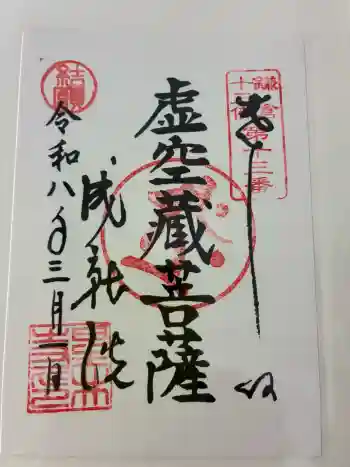 鎌倉
十三佛
第十三番
奉拝
虚空蔵菩薩
成就院
令和八年三月一日
結願